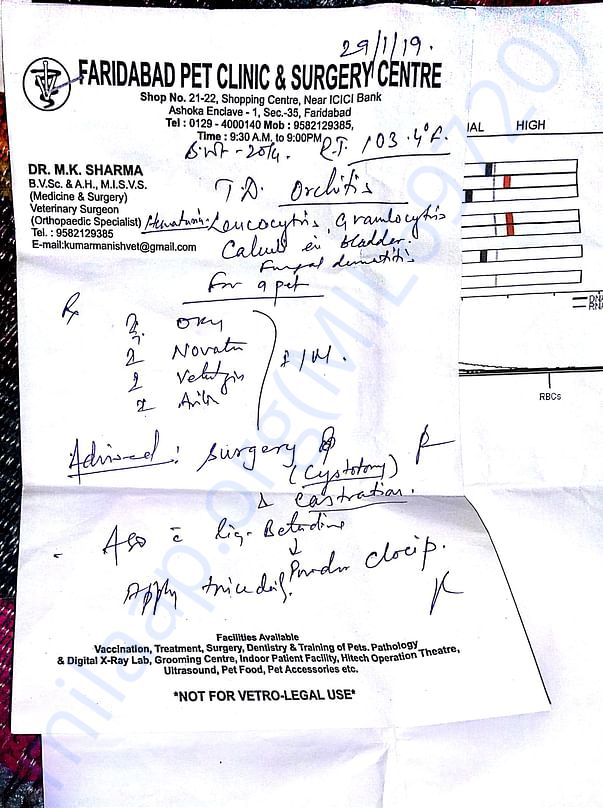 29/1/19.
FARIDABAD PET CLINIC & SURGERY CENTRE
Shop No. 21-22, Shopping Centre, Near ICICI Bank
Ashoka Enclave - 1, Sec.-35, Faridabad
Tel : 0129 - 4000140 Mob : 9582129385,
Time : 9:30 A.M. to 9:00PM
R.T. 103.4°F.
DR. M.K. SHARMA
B.V.Sc. & A.H., M.I.S.V.S.
(Medicine & Surgery)
Veterinary Surgeon
(Orthopaedic Specialist)
Tel. : 9582129385
E-mail:kumarmanishvet@gmail.com
T.D. Orchitis
Leucocytis, Granulocytis
Calculi in bladder.
Fungal
For a pet
Rx
I/M.
Advised : Surgery
(Cystotomy)
& Castration.
Also c̄ liq. Betadine
↓
Powder Clocip.
Apply
Facilities Available
Vaccination, Treatment, Surgery, Dentistry & Training of Pets. Pathology
& Digital X-Ray Lab, Grooming Centre, Indoor Patient Facility, Hitech Operation Theatre,
Ultrasound, Pet Food, Pet Accessories etc.
*NOT FOR VETRO-LEGAL USE*
HIGH
RBCs
milaap.org